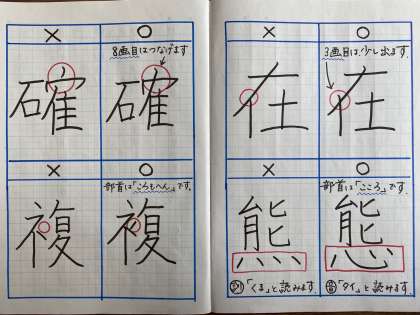 × ○
8画目はつなげます
確 確
× ○
部首は「ころもへん」です。
複 複
× ○
3画目は少し出ます
在 在
× ○
部首は「こころ」です。
熊 態
訓「くま」と読みます
音「タイ」と読みます。